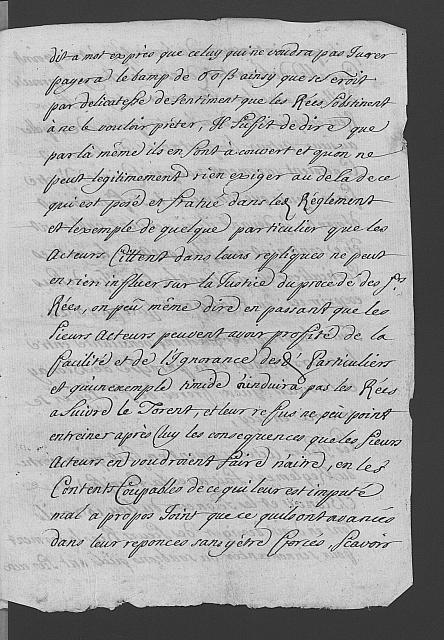 dit a mot exprès que celuy qui ne voudra pas Jurer
payera le bamp de 60 ß ainsy que ce seroit
par delicatesse de sentiment que les Rées s'obstinent
à ne le vouloir prêter, Il suffit de dire que
par là même ils en sont à couvert et qu'on ne
peut legitimement rien exiger au dela de ce
qui est posé et statué dans les Réglement
et l'exemple de quelque particulier que les
Acteurs Cittent dans leurs repliques ne peut
en rien influer sur la Justice du procedé des Srs
Rées, on peu même dire en passant que les
sieurs Acteurs peuvent avoir proffité de la
facilité et de l'Ignorance des dt Particuliers
et qu'un exemple timide n'induira pas les Rées
a suivre le Torent, et leur reffus ne peu point
entreiner après luy les consequences que les sieurs
Acteurs en voudroient faire naitre, en les
Contents Coupables de ce qui leur est imputé
mal a propos Joint que ce qu'ils ont avancés
dans leur reponces sans y être forcés, scavoir